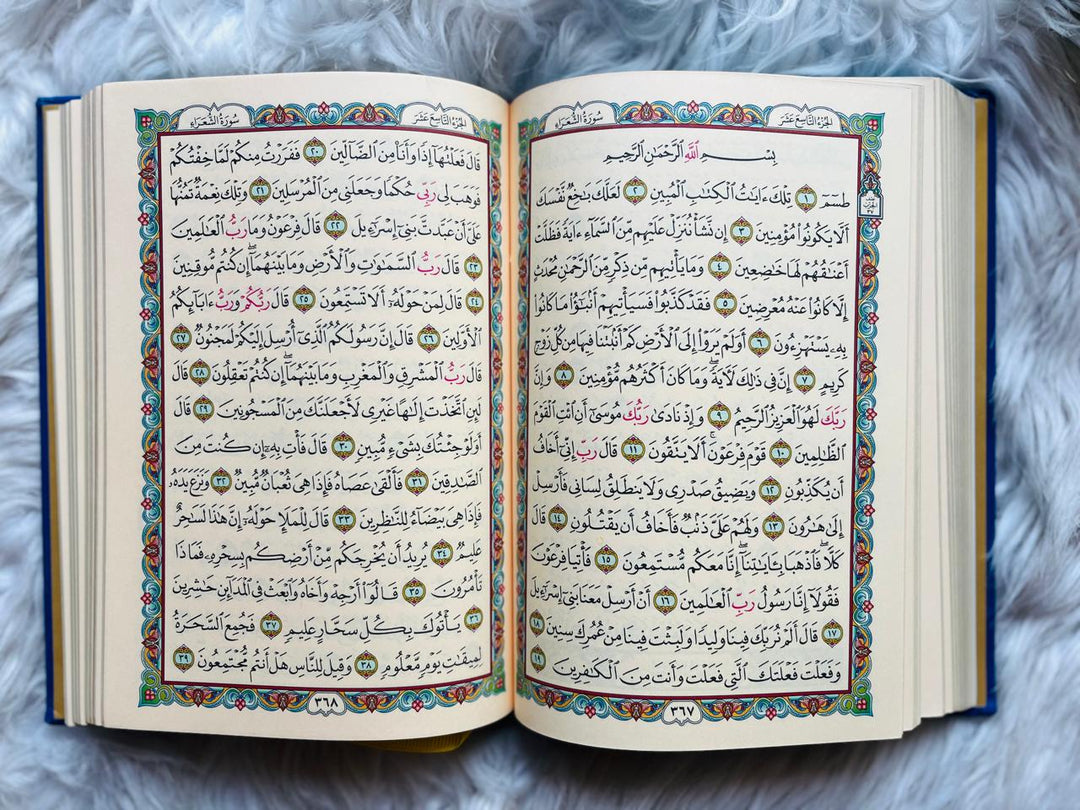 الجزء التاسع عشر سورة الشعراء
بِسْمِ ٱللَّهِ ٱلرَّحْمَٰنِ ٱلرَّحِيمِ
طسٓمٓ ١ تِلْكَ ءَايَٰتُ ٱلْكِتَٰبِ ٱلْمُبِينِ ٢ لَعَلَّكَ بَٰخِعٌ نَّفْسَكَ
أَلَّا يَكُونُوا۟ مُؤْمِنِينَ ٣ إِن نَّشَأْ نُنَزِّلْ عَلَيْهِم مِّنَ ٱلسَّمَآءِ ءَايَةً فَظَلَّتْ
أَعْنَٰقُهُمْ لَهَا خَٰضِعِينَ ٤ وَمَا يَأْتِيهِم مِّن ذِكْرٍ مِّنَ ٱلرَّحْمَٰنِ مُحْدَثٍ
إِلَّا كَانُوا۟ عَنْهُ مُعْرِضِينَ ٥ فَقَدْ كَذَّبُوا۟ فَسَيَأْتِيهِمْ أَنۢبَٰٓؤُا۟ مَا كَانُوا۟
بِهِۦ يَسْتَهْزِءُونَ ٦ أَوَلَمْ يَرَوْا۟ إِلَى ٱلْأَرْضِ كَمْ أَنۢبَتْنَا فِيهَا مِن كُلِّ زَوْجٍ
كَرِيمٍ ٧ إِنَّ فِى ذَٰلِكَ لَءَايَةً ۖ وَمَا كَانَ أَكْثَرُهُم مُّؤْمِنِينَ ٨ وَإِنَّ
رَبَّكَ لَهُوَ ٱلْعَزِيزُ ٱلرَّحِيمُ ٩ وَإِذْ نَادَىٰ رَبُّكَ مُوسَىٰٓ أَنِ ٱئْتِ ٱلْقَوْمَ
ٱلظَّٰلِمِينَ ١٠ قَوْمَ فِرْعَوْنَ ۚ أَلَا يَتَّقُونَ ١١ قَالَ رَبِّ إِنِّىٓ أَخَافُ
أَن يُكَذِّبُونِ ١٢ وَيَضِيقُ صَدْرِى وَلَا يَنطَلِقُ لِسَانِى فَأَرْسِلْ
إِلَىٰ هَٰرُونَ ١٣ وَلَهُمْ عَلَىَّ ذَنۢبٌ فَأَخَافُ أَن يَقْتُلُونِ ١٤ قَالَ
كَلَّا ۖ فَٱذْهَبَا بِـَٔايَٰتِنَآ ۖ إِنَّا مَعَكُم مُّسْتَمِعُونَ ١٥ فَأْتِيَا فِرْعَوْنَ
فَقُولَآ إِنَّا رَسُولُ رَبِّ ٱلْعَٰلَمِينَ ١٦ أَنْ أَرْسِلْ مَعَنَا بَنِىٓ إِسْرَٰٓءِيلَ
١٧ قَالَ أَلَمْ نُرَبِّكَ فِينَا وَلِيدًا وَلَبِثْتَ فِينَا مِنْ عُمُرِكَ سِنِينَ ١٨
وَفَعَلْتَ فَعْلَتَكَ ٱلَّتِى فَعَلْتَ وَأَنتَ مِنَ ٱلْكَٰفِرِينَ ١٩
٣٦٧
الحزب
٣٧
الجزء التاسع عشر سورة الشعراء
قَالَ فَعَلْتُهَآ إِذًا وَأَنَا۠ مِنَ ٱلضَّآلِّينَ ٢٠ فَفَرَرْتُ مِنكُمْ لَمَّا خِفْتُكُمْ
فَوَهَبَ لِى رَبِّى حُكْمًا وَجَعَلَنِى مِنَ ٱلْمُرْسَلِينَ ٢١ وَتِلْكَ نِعْمَةٌ تَمُنُّهَا
عَلَىَّ أَنْ عَبَّدتَّ بَنِىٓ إِسْرَٰٓءِيلَ ٢٢ قَالَ فِرْعَوْنُ وَمَا رَبُّ ٱلْعَٰلَمِينَ
٢٣ قَالَ رَبُّ ٱلسَّمَٰوَٰتِ وَٱلْأَرْضِ وَمَا بَيْنَهُمَآ ۖ إِن كُنتُم مُّوقِنِينَ
٢٤ قَالَ لِمَنْ حَوْلَهُۥٓ أَلَا تَسْتَمِعُونَ ٢٥ قَالَ رَبُّكُمْ وَرَبُّ ءَابَآئِكُمُ
ٱلْأَوَّلِينَ ٢٦ قَالَ إِنَّ رَسُولَكُمُ ٱلَّذِىٓ أُرْسِلَ إِلَيْكُمْ لَمَجْنُونٌ ٢٧
قَالَ رَبُّ ٱلْمَشْرِقِ وَٱلْمَغْرِبِ وَمَا بَيْنَهُمَآ ۖ إِن كُنتُمْ تَعْقِلُونَ ٢٨ قَالَ
لَئِنِ ٱتَّخَذْتَ إِلَٰهًا غَيْرِى لَأَجْعَلَنَّكَ مِنَ ٱلْمَسْجُونِينَ ٢٩ قَالَ
أَوَلَوْ جِئْتُكَ بِشَىْءٍ مُّبِينٍ ٣٠ قَالَ فَأْتِ بِهِۦٓ إِن كُنتَ مِنَ
ٱلصَّٰدِقِينَ ٣١ فَأَلْقَىٰ عَصَاهُ فَإِذَا هِىَ ثُعْبَانٌ مُّبِينٌ ٣٢ وَنَزَعَ يَدَهُۥ
فَإِذَا هِىَ بَيْضَآءُ لِلنَّٰظِرِينَ ٣٣ قَالَ لِلْمَلَإِ حَوْلَهُۥٓ إِنَّ هَٰذَا لَسَٰحِرٌ
عَلِيمٌ ٣٤ يُرِيدُ أَن يُخْرِجَكُم مِّنْ أَرْضِكُم بِسِحْرِهِۦ فَمَاذَا
تَأْمُرُونَ ٣٥ قَالُوٓا۟ أَرْجِهْ وَأَخَاهُ وَٱبْعَثْ فِى ٱلْمَدَآئِنِ حَٰشِرِينَ
٣٦ يَأْتُوكَ بِكُلِّ سَحَّارٍ عَلِيمٍ ٣٧ فَجُمِعَ ٱلسَّحَرَةُ
لِمِيقَٰتِ يَوْمٍ مَّعْلُومٍ ٣٨ وَقِيلَ لِلنَّاسِ هَلْ أَنتُم مُّجْتَمِعُونَ ٣٩
٣٦٨